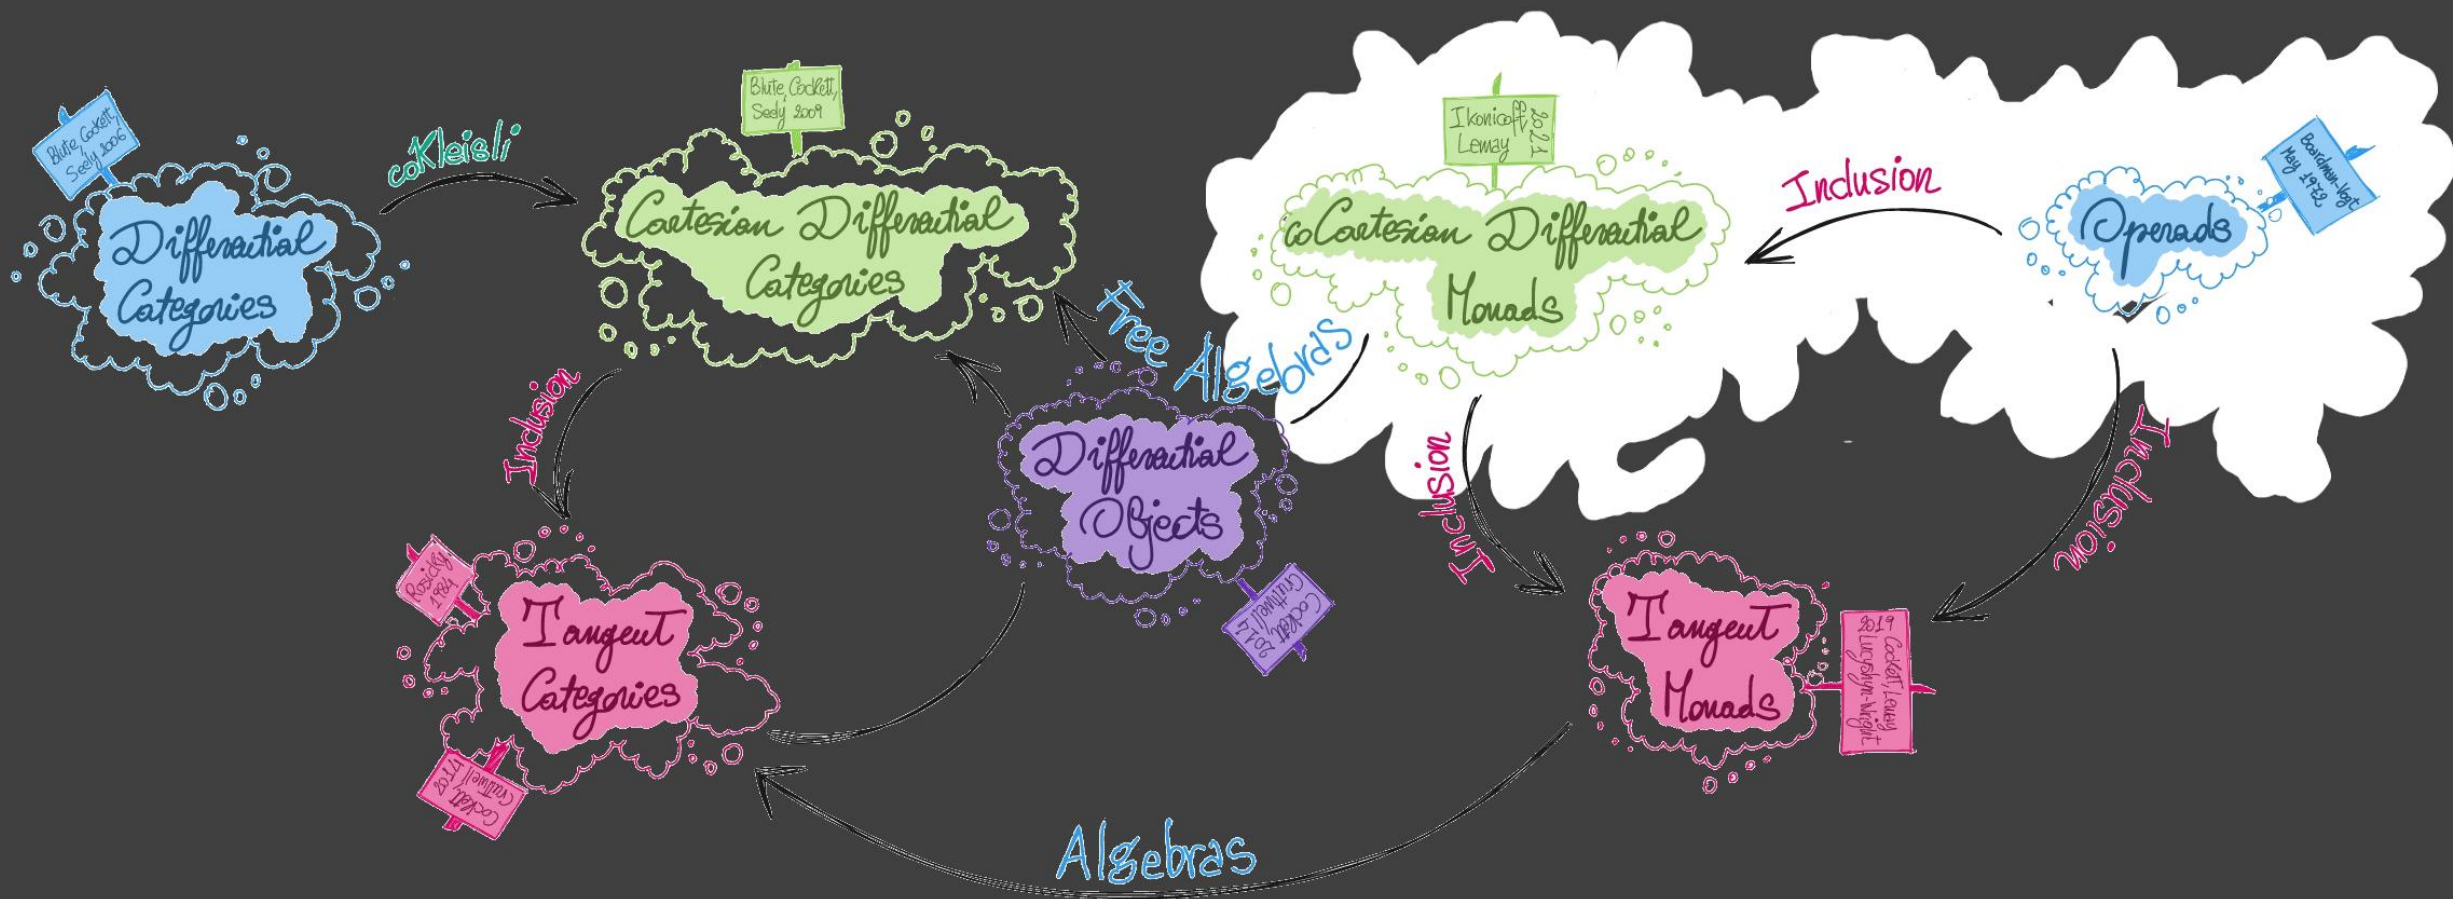 Blute, Cockett,
Seely 2006
Differential
Categories
coKleisli
Blute, Cockett,
Seely 2009
Cartesian Differential
Categories
Free Algebras
Ikonicoff,
Lemay
2021
coCartesian Differential
Monads
Inclusion
Operads
Boardman-Vogt
May 1972
Inclusion
Differential
Objects
Cockett
Cruttwell
2014
Inclusion
Inclusion
Rosický
1984
Tangent
Categories
Cockett,
Cruttwell
2014
Tangent
Monads
2019 Cockett, Lemay
Lucyshyn-Wright
Algebras